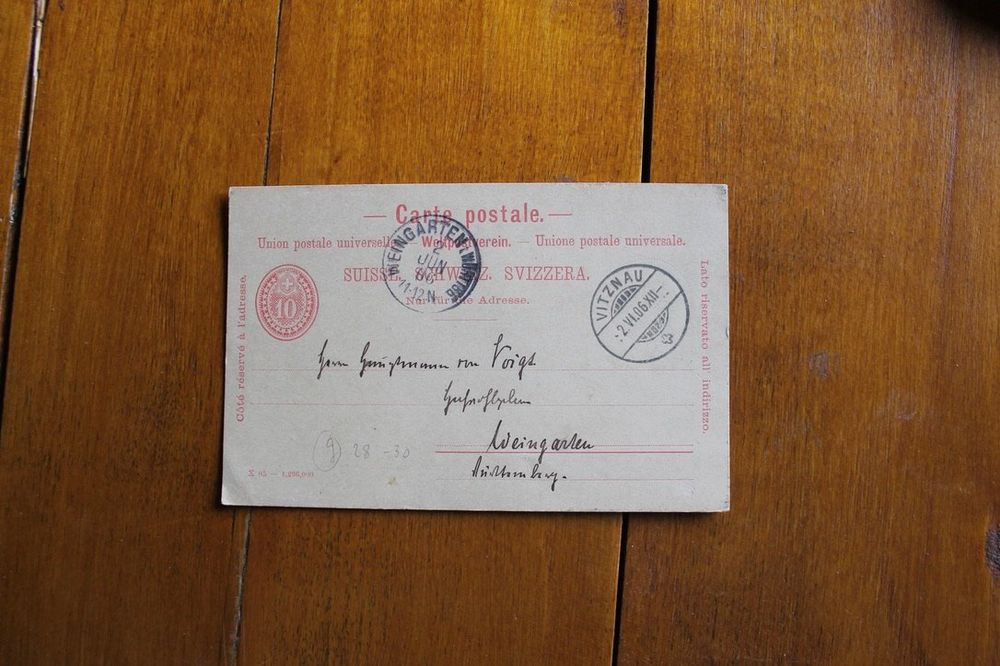 — Carte postale. —
Union postale universelle. — Weltpostverein. — Unione postale universale.
SUISSE. SCHWEIZ. SVIZZERA.
Nur für die Adresse.
Côté réservé à l'adresse.
10
WEINGARTEN (WÜRTTBG)
2
JUN
06
11-12 N
VITZNAU
2.VI.06.XII—
Lato riservato all' indirizzo.
Herrn Hauptmann von Voigt
Weingarten
Württemberg.
9 28 -30
X 05 — 1,296,000